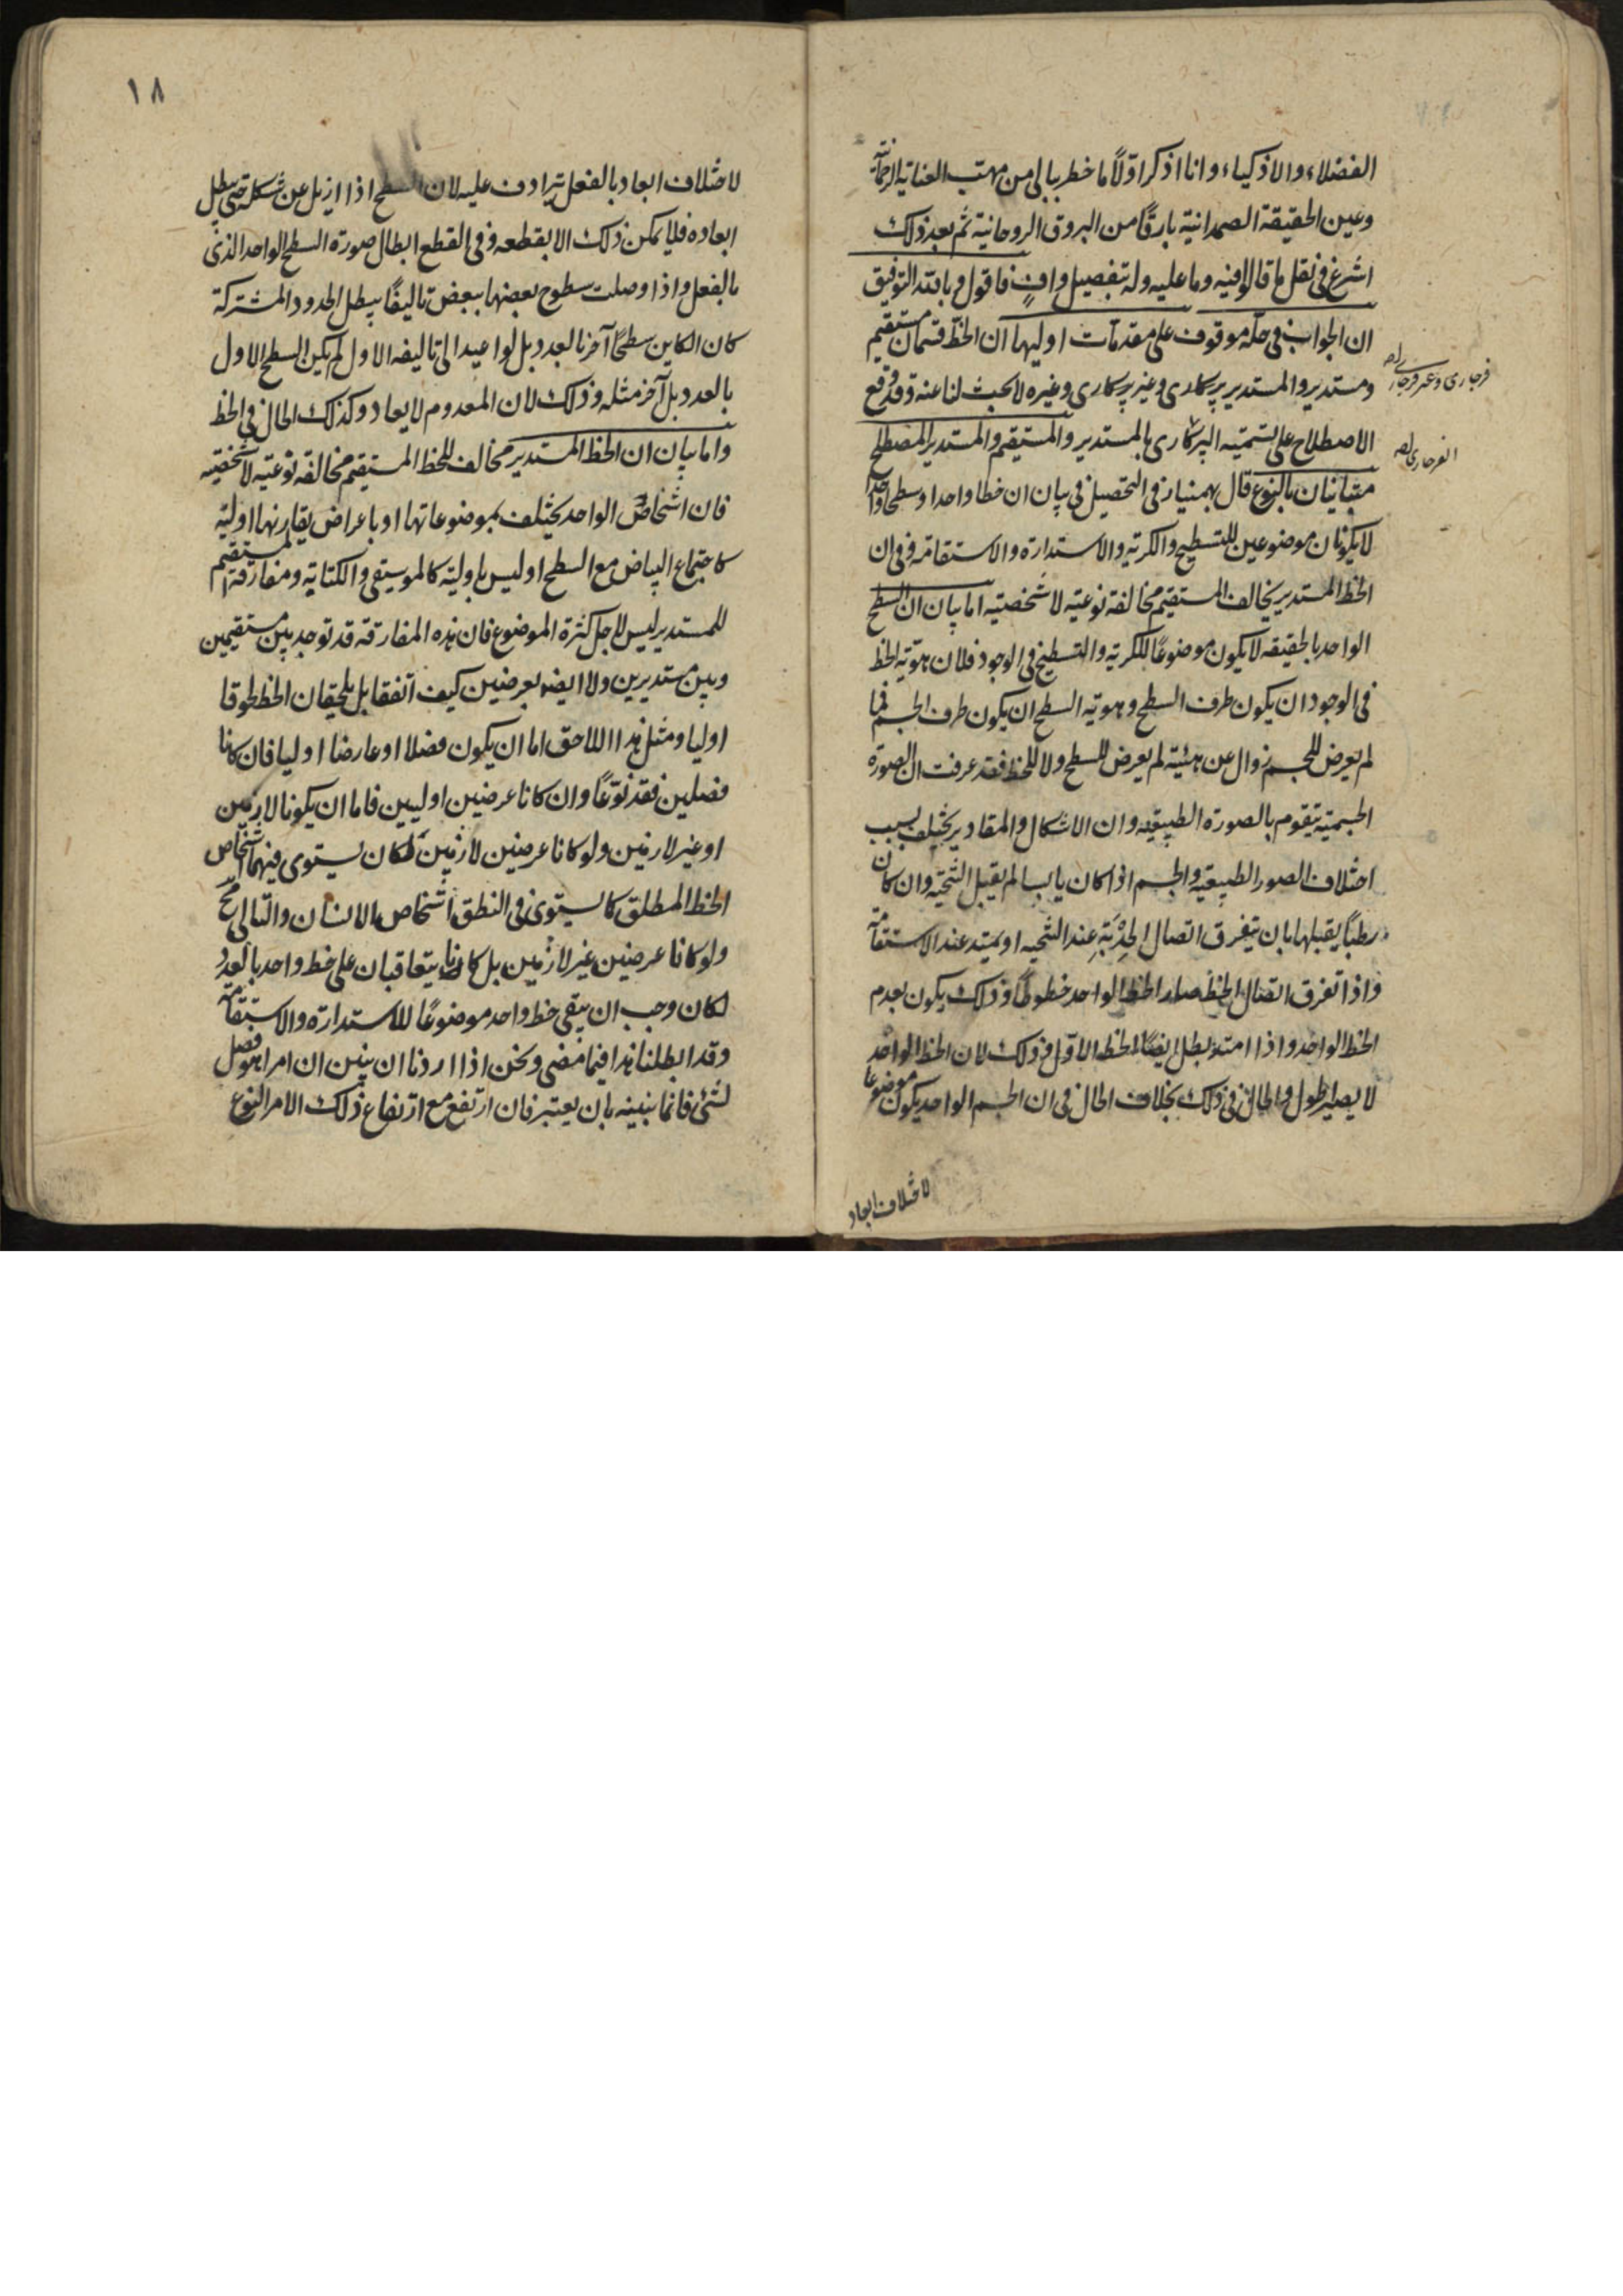 الفضلاء والاذكياء وانا اذكر اولًا ما خطر ببالى من مهب العناية الرحمانية
وعين الحقيقة الصمدانية بارقًا من البروق الروحانية ثم بعد ذلك
اشرع فى نقل ما قالوا فيه وما عليه وله بتفصيل وافٍ فاقول وبالله التوفيق
ان الجواب فى حله موقوف على مقدمات اوليها ان الخط قسمان مستقيم
ومستدير والمستدير پرکاری وغير پرکاری وغيره لا بحث لنا عنه وقد وقع
فرجارى وغير فرجارى
الاصطلاح على تسميته الپركارى بالمستدير والمستقيم والمستدير المصطلح
الفرجارى
متباينان بالنوع قال بهمنيار فى التحصيل فى بيان ان خطا واحدا وسطحا واحدا
لا يكونان موضوعين للتسطيح والكرية والاستدارة والاستقامة وفى ان
الخط المستدير يخالف المستقيم مخالفة نوعية لا شخصية اما بيان ان السطح
الواحد بالحقيقة لا يكون موضوعًا للكرية والتسطيح فى الوجود فلان هوية الخط
فى الوجود ان يكون طرف السطح وهوية السطح ان يكون طرف الجسم فما
لم يعرض للجسم زوال عن هيئته لم يعرض للسطح ولا للخط فقد عرفت ان الصورة
الجسمية يتقوم بالصورة الطبيعية وان الاشكال والمقادير يختلف بسبب
اختلاف الصور الطبيعية والجسم اذا كان يابسا لم يقبل التنحية وان كان
رطبًا يقبلها بان يتفرق اتصال الحدبة عند التنحيه او يمتد عند الاستقامة
واذا تفرق اتصال الخط صار الخط الواحد خطوطًا وذلك يكون بعدم
الخط الواحد واذا امتد بطل ايضًا الخط الاول وذلك لان الخط الواحد
لا يصير اطول والحال فى ذلك بخلاف الحال فى ان الجسم الواحد يكون موضوعا
لاختلاف ابعاد
١٨
لاختلاف ابعاد بالفعل يترادف عليه لان السطح اذا ازيل عن شكله حتى يبطل
ابعاده فلا يمكن ذلك الا بقطعه وفى القطع ابطال صورة السطح الواحد الذى
بالفعل واذا وصلت سطوح بعضها ببعض تاليفًا يبطل الحدود المشتركة
كان الكاين سطحًا آخر بالعدد بل لو اعيد الى تاليفه الاول لم يكن السطح الاول
بالعدد بل آخر مثله وذلك لان المعدوم لا يعاد وكذلك الحال فى الخط
واما بيان ان الخط المستدير مخالف للخط المستقيم مخالفة نوعية لا شخصية
فان اشخاص الواحد يختلف بموضوعاتها او باعراض يقارنها اولية
كاجتماع البياض مع السطح او ليس باولية كالموسيقى والكتابة ومفارقة المستقيم
للمستدير ليس لاجل كثرة الموضوع فان هذه المفارقة قد توجد بين مستقيمين
وبين مستديرين ولا ايضا بعرضين كيف اتفقا بل يلحقان الخط لحوقا
اوليا ومثل هذا اللاحق اما ان يكون فصلا او عارضا اوليا فان كانا
فصلين فقد نوّعًا وان كانا عرضين اوليين فاما ان يكونا لازمين
او غير لازمين ولو كانا عرضين لازمين لكان يستوى فيهما اشخاص
الخط المطلق كما يستوى فى النطق اشخاص الانسان والتالى مح
ولو كانا عرضين غير لازمين بل كانا يتعاقبان على خط واحد بالعدد
لكان وجب ان يبقى خط واحد موضوعًا للاستدارة والاستقامة
وقد ابطلنا هذا فيما مضى ونحن اذا اردنا ان نبين ان امرا هو فصل
لشئ فانما نبينه بان يعتبر فان ارتفع مع ارتفاع ذلك الامر النوع